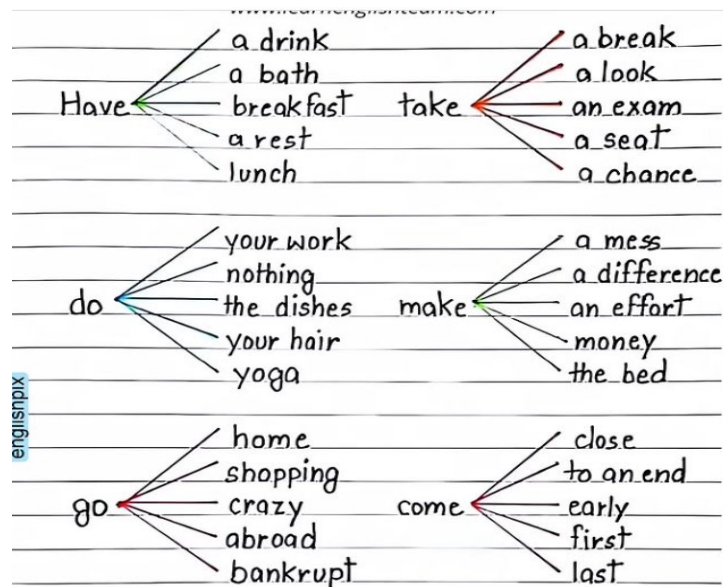 www.learnenglishteam.com
Have
a drink
a bath
breakfast
a rest
lunch
take
a break
a look
an exam
a seat
a chance
do
your work
nothing
the dishes
your hair
yoga
make
a mess
a difference
an effort
money
the bed
englisnpix
go
home
shopping
crazy
abroad
bankrupt
come
close
to an end
early
first
last